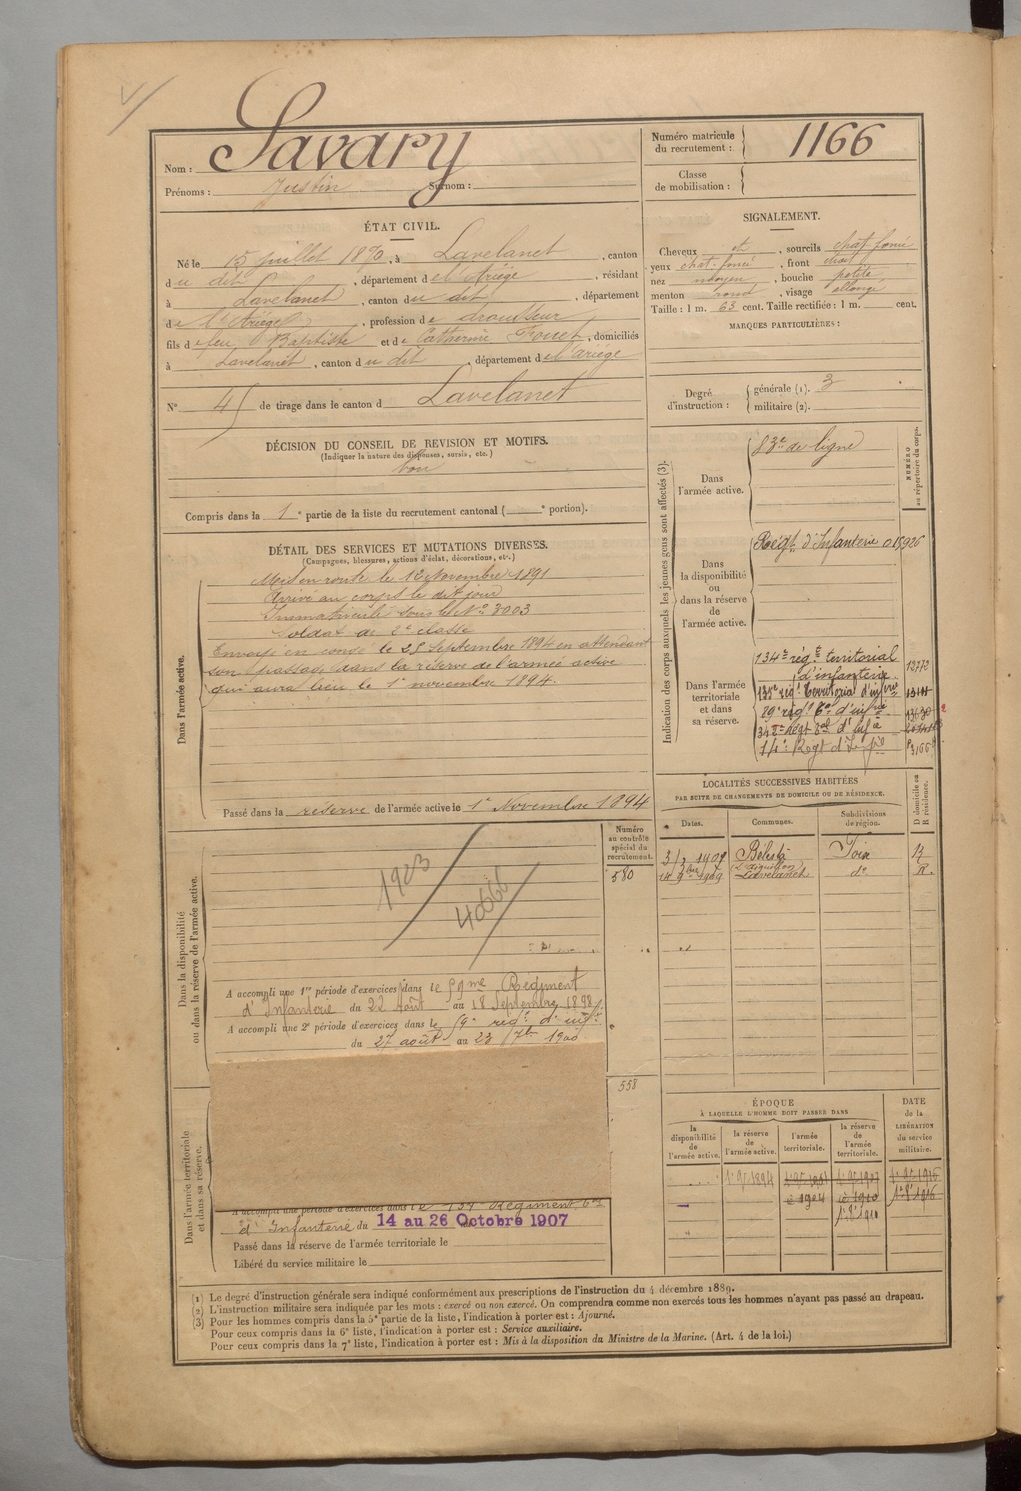 Nom : Savary
Prénoms : Justin Surnom :
Numéro matricule du recrutement : 1166
Classe de mobilisation :
ÉTAT CIVIL.
Né le 15 juillet 1870, à Lavelanet, canton
du dit, département de l'Ariège, résidant
à Lavelanet, canton du dit, département
de l'Ariège, profession de
fils de feu Baptiste et de Catherine, domiciliés
à Lavelanet, canton du dit, département de l'ariège
No 45 de tirage dans le canton d Lavelanet
DÉCISION DU CONSEIL DE REVISION ET MOTIFS.
(Indiquer la nature des dispenses, sursis, etc.)
bon
Compris dans la 1e partie de la liste du recrutement cantonal ( e portion).
SIGNALEMENT.
Cheveux et, sourcils chat. foncé
yeux chat. foncé, front
nez moyen, bouche petite
menton rond, visage allongé
Taille : 1 m. 63 cent. Taille rectifiée : 1 m. cent.
MARQUES PARTICULIÈRES :
Degré d'instruction : générale (1). 3
militaire (2).
DÉTAIL DES SERVICES ET MUTATIONS DIVERSES.
(Campagnes, blessures, actions d'éclat, décorations, etc.)
Dans l'armée active.
Mis en route le 12 Novembre 1891
Arrivé au corps le dit jour
Immatriculé sous le No 3003
Soldat de 2e classe
Envoyé en congé le 25 Septembre 1894 en attendant
son passage dans la réserve de l'armée active
qui aura lieu le 1er novembre 1894.
Passé dans la réserve de l'armée active le 1er Novembre 1894
Indication des corps auxquels les jeunes gens sont affectés (3).
NUMÉRO au répertoire du corps.
Dans l'armée active.
83e de ligne
Dans la disponibilité ou dans la réserve de l'armée active.
Régt d'Infanterie 015926
Dans l'armée territoriale et dans sa réserve.
134e rég.t territorial
d'infanterie 13772
135e régt territorial d'infrie
LOCALITÉS SUCCESSIVES HABITÉES
PAR SUITE DE CHANGEMENTS DE DOMICILE OU DE RÉSIDENCE.
Dates. Communes. Subdivisions de région. D domicile ou R résidence.
Bélesta Foix
Lavelanet do R.
Dans la disponibilité ou dans la réserve de l'armée active.
Numéro au contrôle spécial du recrutement.
580
1903
A accompli une 1re période d'exercices dans le 59me Régiment
d'Infanterie du 22 Août au 18 Septembre 1898
A accompli une 2e période d'exercices dans le 59e régt d'infie
du 27 août au 23 7bre 1900
Dans l'armée territoriale et dans sa réserve.
558
A accompli une période d'exercices dans le 134e Régiment
d'Infanterie du 14 au 26 Octobre 1907
Passé dans la réserve de l'armée territoriale le
Libéré du service militaire le
ÉPOQUE
À LAQUELLE L'HOMME DOIT PASSER DANS
DATE de la LIBÉRATION du service militaire.
la disponibilité de l'armée active.
la réserve de l'armée active.
l'armée territoriale.
la réserve de l'armée territoriale.
(1) Le degré d'instruction générale sera indiqué conformément aux prescriptions de l'instruction du 4 décembre 1889.
(2) L'instruction militaire sera indiquée par les mots : exercé ou non exercé. On comprendra comme non exercés tous les hommes n'ayant pas passé au drapeau.
(3) Pour les hommes compris dans la 5e partie de la liste, l'indication à porter est : Ajourné.
Pour ceux compris dans la 6e liste, l'indication à porter est : Service auxiliaire.
Pour ceux compris dans la 7e liste, l'indication à porter est : Mis à la disposition du Ministre de la Marine. (Art. 4 de la loi.)